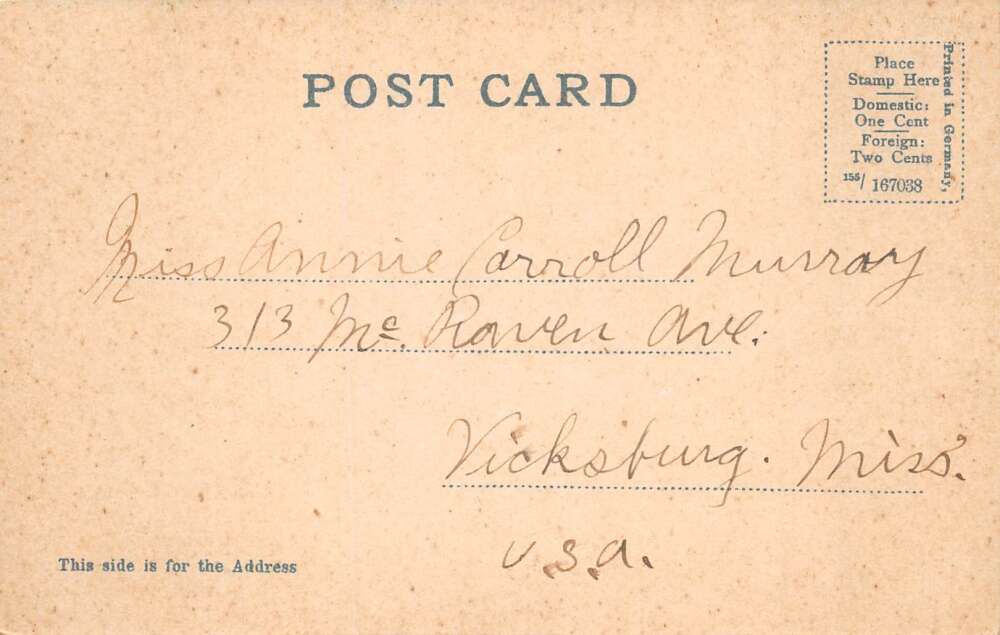 POST CARD
Place
Stamp Here
Domestic:
One Cent
Foreign:
Two Cents
155/ 167038
Printed in Germany,
Miss Annie Carroll Murray
313 Mc. Raven Ave.
Vicksburg. Miss.
U.S.A.
This side is for the Address